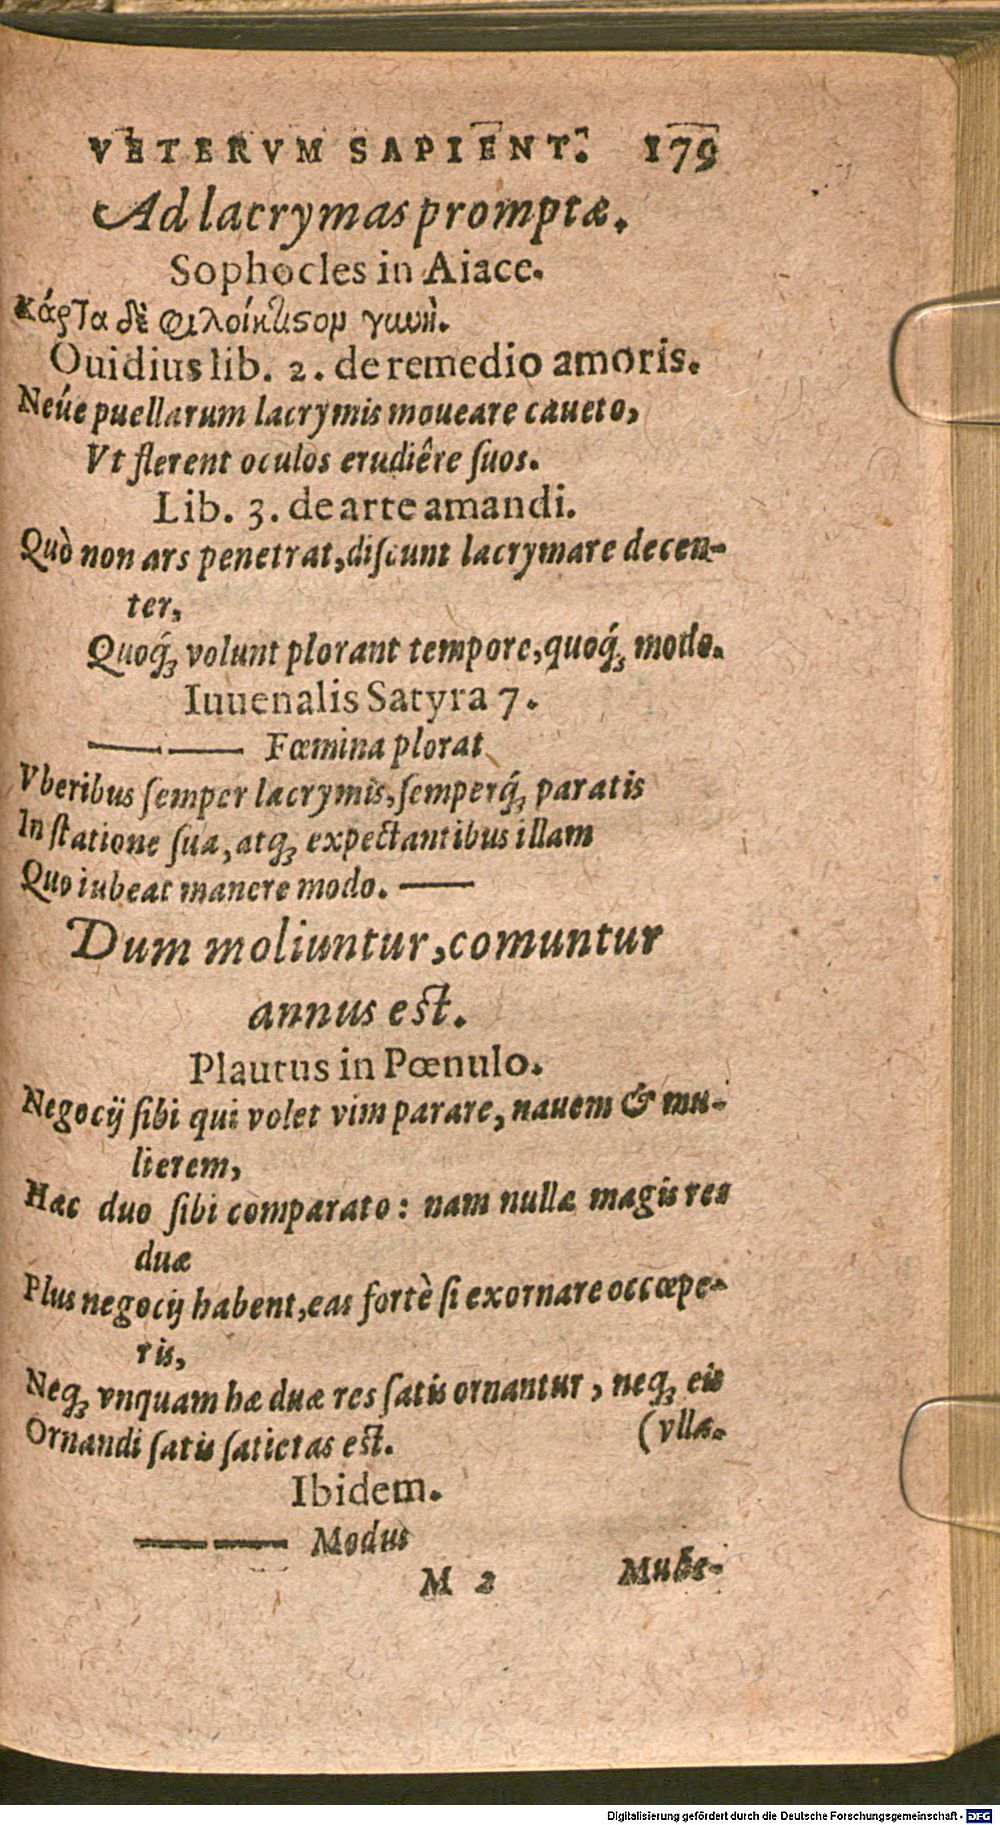 VETERVM SAPIENT. 179
Ad lacrymas promptæ.
Sophocles in Aiace.
κάρτα δὲ φιλοίκτιστον γυνὴ.
Ouidius lib. 2. de remedio amoris.
Neúe puellarum lacrymis moueare caueto,
Vt flerent oculos erudiêre ſuos.
Lib. 3. de arte amandi.
Quò non ars penetrat, diſcunt lacrymare decen-
ter,
Quoq́ꝫ volunt plorant tempore, quoq́ꝫ modo.
Iuuenalis Satyra 7.
—— —— Fœmina plorat
Vberibus ſemper lacrymis, ſemperq́ꝫ paratis
In ſtatione ſua, atqꝫ expectantibus illam
Quo iubeat manere modo. ——
Dum moliuntur, comuntur
annus eſt.
Plautus in Pœnulo.
Negocij ſibi qui volet vim parare, nauem & mu-
lierem,
Hæc duo ſibi comparato: nam nullæ magis res
duæ
Plus negocij habent, eas fortè ſi exornare occœpe-
ris,
Neqꝫ vnquam hæ duæ res ſatis ornantur, neqꝫ eis
Ornandi ſatis ſatietas eſt. (vlla.
Ibidem.
—— —— Modus
M 2 Mulie-
Digitalisierung gefördert durch die Deutsche Forschungsgemeinschaft - DFG